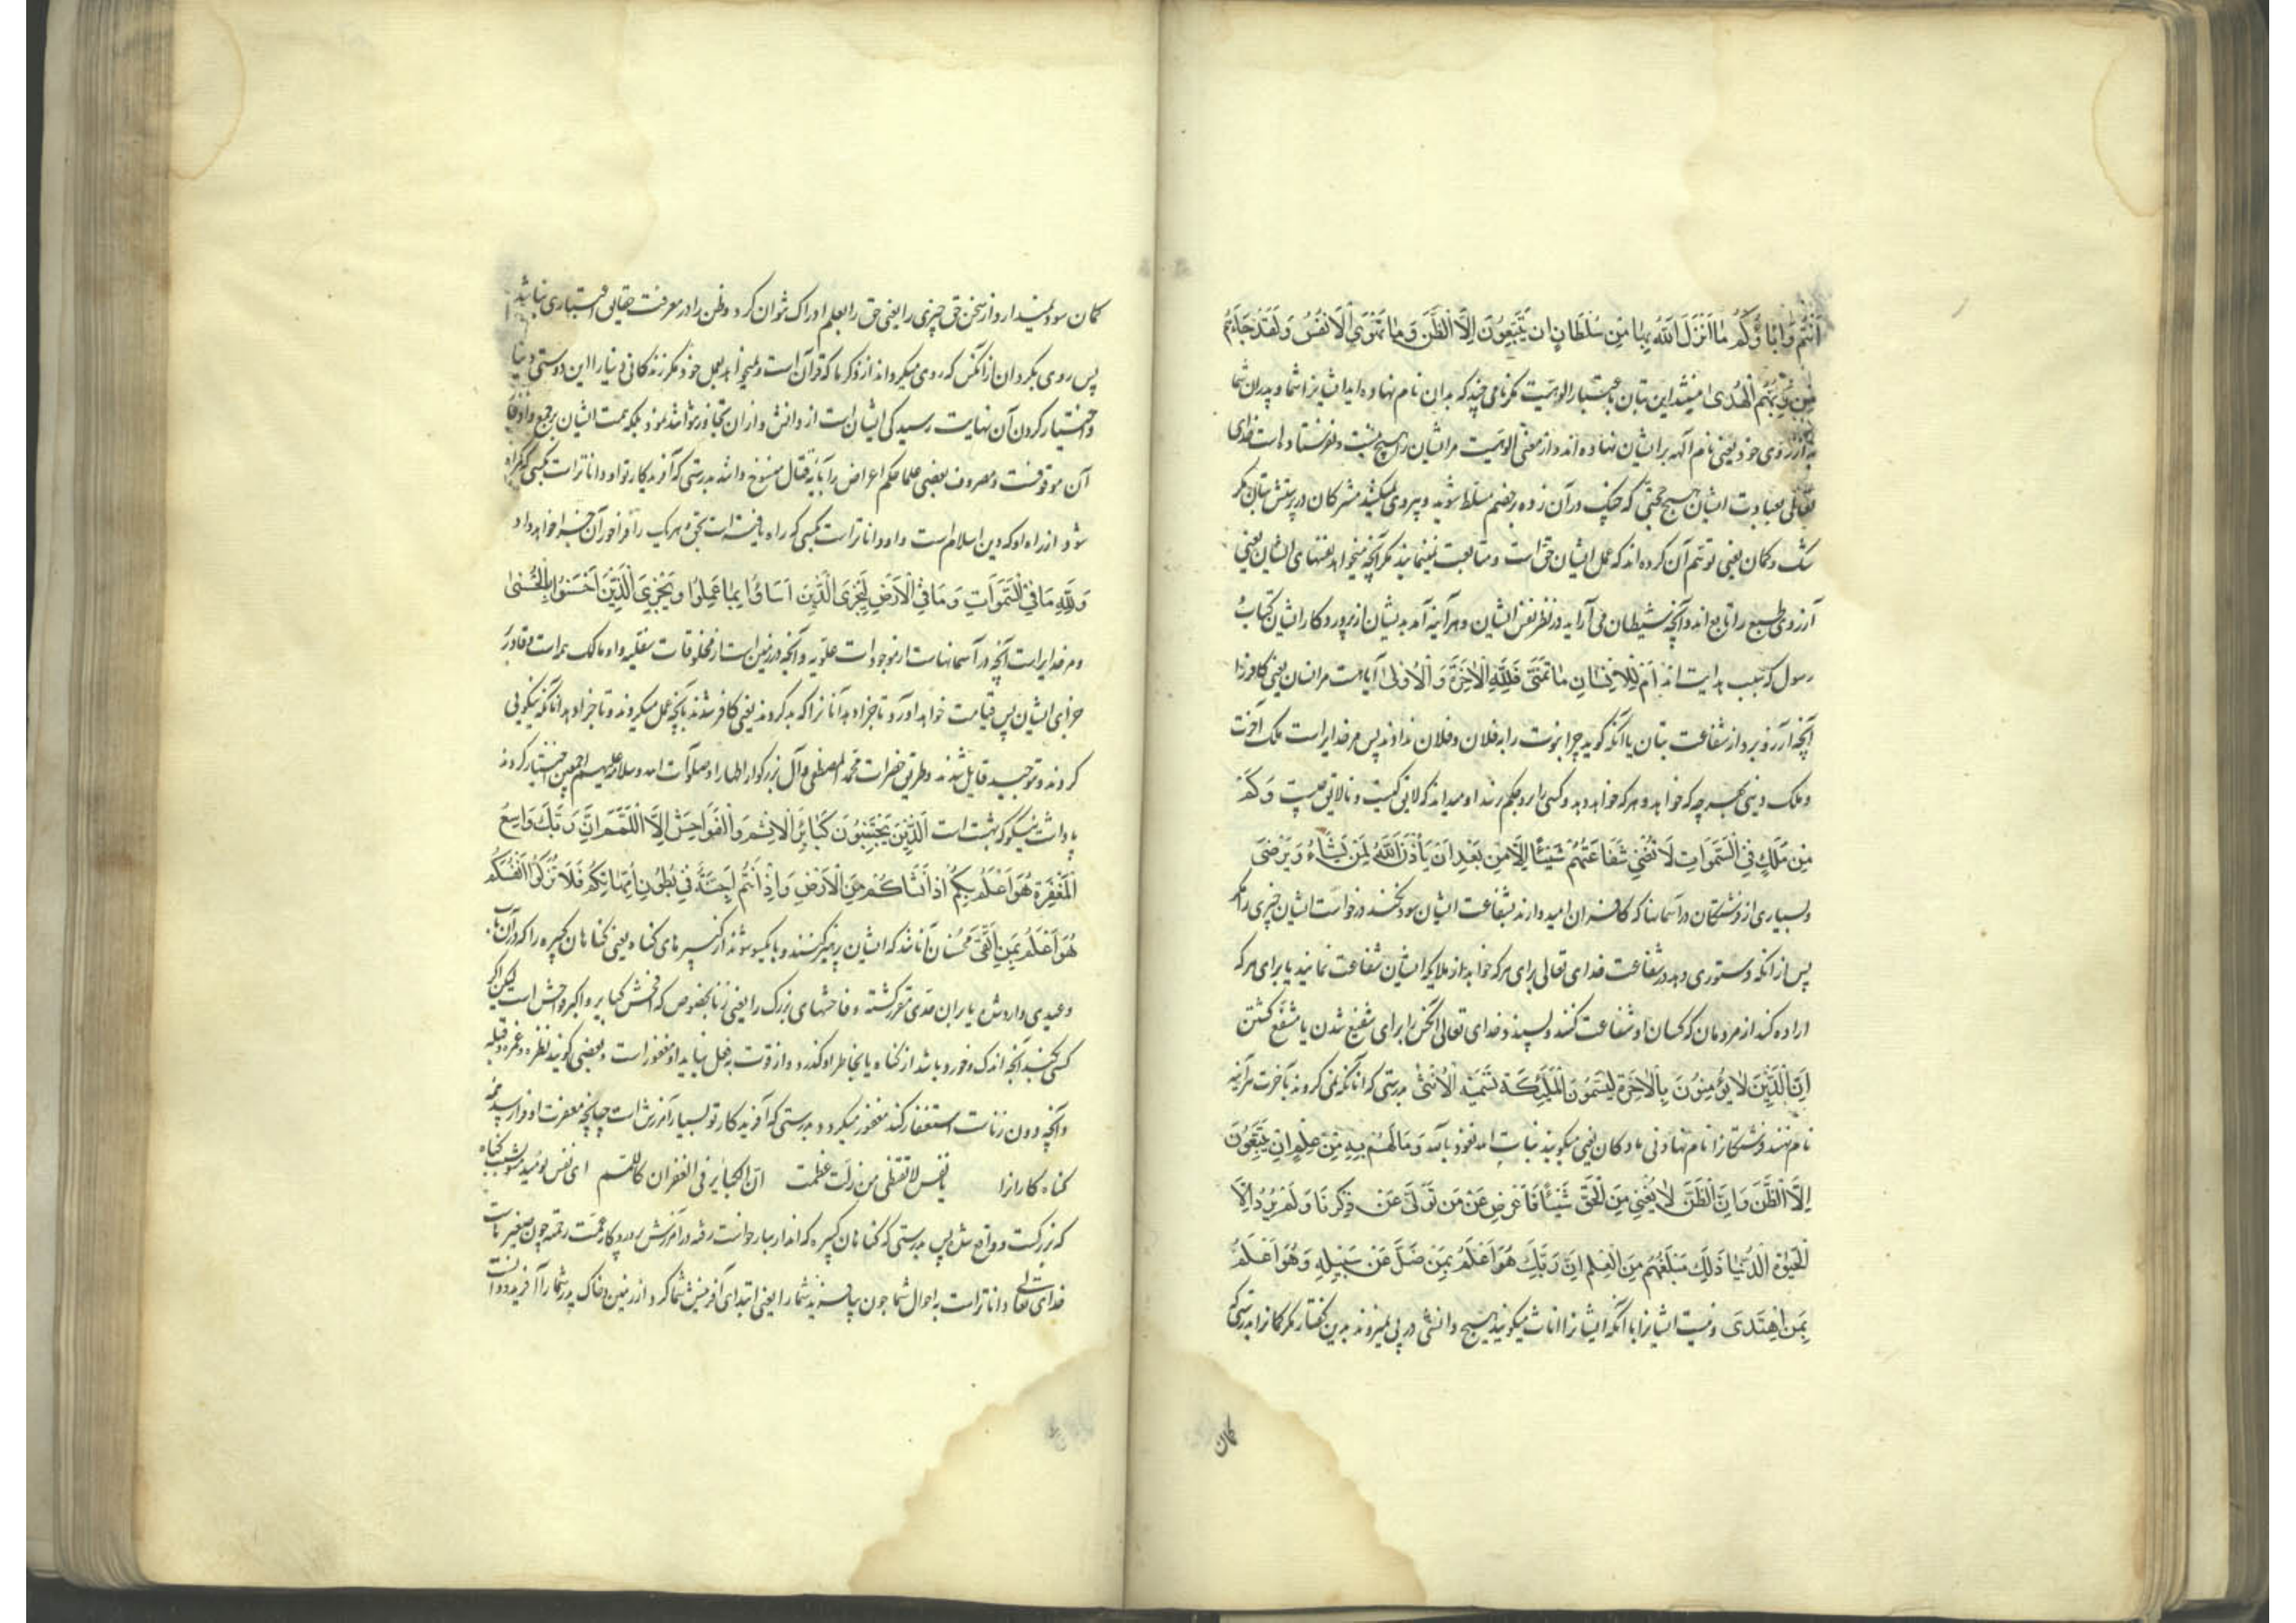 أَنْتُمْ وَآبَاؤُكُمْ مَا أَنْزَلَ اللَّهُ بِهَا مِنْ سُلْطَانٍ إِنْ يَتَّبِعُونَ إِلَّا الظَّنَّ وَمَا تَهْوَى الْأَنْفُسُ وَلَقَدْ جَاءَهُمْ
مِنْ رَبِّهِمُ الْهُدَى نیستند این بتان باعتبار الوهیت مکر نامی چند که بدان نام نهاده اید ایشانرا شما و پدران شما
بآرزوی خود یعنی نام آلهه بر ایشان نهاده اند و از معنی الوهیت مر ایشان را هیچ نیست و نفرستاده است خدای
تعالی بعبادت ایشان هیچ حجتی که چنک در آن زده بر خصم مسلط شوید و پیروی نمیکنند مشرکان در پرستش بتان مکر
شک و کمان یعنی توهم آن کرده اند که عمل ایشان حق است و متابعت نمینمایند مکر آنچه میخواهد نفسهای ایشان یعنی
آرزوی طبع را تابع اند و آنچه شیطان می آراید در نظر نفس ایشان و هر آینه آمد بدیشان از پرورد کار ایشان کتاب
رسول که سبب هدایت اند أَمْ لِلْإِنْسَانِ مَا تَمَنَّى فَلِلَّهِ الْآخِرَةُ وَالْأُولَى آیا هست مر انسان یعنی کافر را
آنچه آرزو برد از شفاعت بتان یا آنکه کوید چرا نبوت را به فلان و فلان ندادند پس مر خدایراست ملک آخرت
و ملک دنیی بهر چه که خواهد و هر که خواهد دهد و کسی را برو حکم نرسد او میداند که لایق کیست و نالایق چیست وَكَمْ
مِنْ مَلَكٍ فِي السَّمَوَاتِ لَا تُغْنِي شَفَاعَتُهُمْ شَيْئًا إِلَّا مِنْ بَعْدِ أَنْ يَأْذَنَ اللَّهُ لِمَنْ يَشَاءُ وَيَرْضَى
و بسیاری از فرشتکان در آسمانها که کافران امید دارند بشفاعت ایشان سود نکند درخواست ایشان چیزی را مکر
پس از آنکه دستوری دهد در شفاعت خدای تعالی برای هر که خواهد از ملایکه ایشان شفاعت نمایند یا برای هر که
اراده کند از مردمان که کسان او شفاعت کنند و پسندد خدای تعالی آنکس را برای شفیع شدن یا مشفّع کشتن
إِنَّ الَّذِينَ لَا يُؤْمِنُونَ بِالْآخِرَةِ لَيُسَمُّونَ الْمَلَائِكَةَ تَسْمِيَةَ الْأُنْثَى بدرستی که آنانکه نمی کروند بآخرت هر آینه
نام نهند فرشتکانرا نام نهادنی مادکان یعنی میکویند بنات الله نعوذ بالله وَمَا لَهُمْ بِهِ مِنْ عِلْمٍ إِنْ يَتَّبِعُونَ
إِلَّا الظَّنَّ وَإِنَّ الظَّنَّ لَا يُغْنِي مِنَ الْحَقِّ شَيْئًا فَأَعْرِضْ عَنْ مَنْ تَوَلَّى عَنْ ذِكْرِنَا وَلَمْ يُرِدْ إِلَّا
الْحَيَوةَ الدُّنْيَا ذَلِكَ مَبْلَغُهُمْ مِنَ الْعِلْمِ إِنَّ رَبَّكَ هُوَ أَعْلَمُ بِمَنْ ضَلَّ عَنْ سَبِيلِهِ وَهُوَ أَعْلَمُ
بِمَنِ اهْتَدَى و نیست ایشانرا با آنکه ایشانرا اناث میکویند هیچ دانشی در پی نمیروند بدین کفتار مکر کمانرا بدرستی که
کمان
کمان سود نمیدارد از سخن حق چیزی را یعنی حق را بعلم ادراک توان کرد و ظن را در معرفت حقایق اعتباری نباشد
پس روی بکردان از آنکس که روی میکرداند از ذکر ما که قرآن است و نمیخواهد بعمل خود مکر زندکانی دنیا را این دوستی دنیا
و اختیار کردن آن نهایت رسیدکی ایشان است از دانش و از ان تجاوز نتوانند نمود بلکه همت ایشان بر جمع
آن موقوفست و مصروف بعضی علما حکم اعراض را بآیه قتال منسوخ دانند بدرستی که آفریدکار تو او داناترست بکسی که کمراه
شود از راه او که دین اسلام است و او داناتر است بکسی که راه یافته است بحق و هر یک را فراخور آن جزا خواهد داد
وَلِلَّهِ مَا فِي السَّمَوَاتِ وَمَا فِي الْأَرْضِ لِيَجْزِيَ الَّذِينَ أَسَاؤُا بِمَا عَمِلُوا وَيَجْزِيَ الَّذِينَ أَحْسَنُوا بِالْحُسْنَى
و مر خدایراست آنچه در آسمانهاست از موجودات علویه و آنچه در زمین است از مخلوقات سفلیه و او مالک همه است و قادر
جزای ایشان پس قیامت خواهد آورد تا جزا دهد آنانرا که بد کردند یعنی کافر شدند بآنچه عمل میکردند و تا جزا دهد آنانکه نیکویی
کردند و بتوحید قایل شدند و طریق حضرات محمد المصطفی و آل بزرکوار اطهار او صلوات الله و سلامه علیهم اجمعین اختیار کردند
پاداشت نیکو که بهشت است الَّذِينَ يَجْتَنِبُونَ كَبَائِرَ الْإِثْمِ وَالْفَوَاحِشَ إِلَّا اللَّمَمَ إِنَّ رَبَّكَ وَاسِعُ
الْمَغْفِرَةِ هُوَ أَعْلَمُ بِكُمْ إِذْ أَنْشَأَكُمْ مِنَ الْأَرْضِ وَإِذْ أَنْتُمْ أَجِنَّةٌ فِي بُطُونِ أُمَّهَاتِكُمْ فَلَا تُزَكُّوا أَنْفُسَكُمْ
هُوَ أَعْلَمُ بِمَنِ اتَّقَى محسنان آنانند که ایشان پرهیز کنند و بایکسو شوند از کبیرهای کناه یعنی کناهان کبیره را که در آن باب
وعیدی وارد شده یا بران حدی مقرر کشته و فاحشهای بزرک را یعنی زنا بخصوص که افحش کبایر و اکبر فواحش است لیکن اکر
کسی بکند آنچه اندک و خورد باشد از کناه یا بخاطر او کذرد و از قوت بفعل نیاید او مغفور است و بعضی کویند نظره و غمزه و قبله
و آنچه دون زناست استغفار کند مغفور میکردد بدرستی که آفریدکار تو بسیار آمرزش است چنانچه مغفرت او فرارسد همه
کناه کارانرا یا نفس لا تقنطی من زلّت عظمت ان الکبائر فی الغفران کاللمم ای نفس نومید مشو بسبب کناه
که بزرکست و واقع شده پس بدرستی که کناهان کبیره در آمرزش پروردکار چون صغیرهاست
خدای تعالی داناتر است باحوال شما چون بیافرید شما را یعنی ابتدای آفرینش شما کرد از زمین و خاک پدر شما را آفرید و دانست